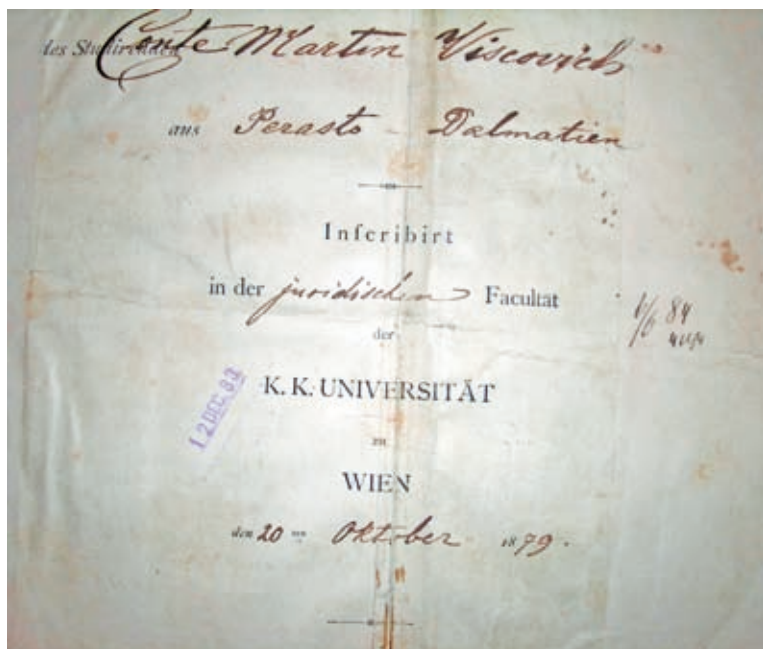 des Studirenden Conte Martin Viscovich
aus Perasto - Dalmatien
Inscribirt
in der juridischen Facultät
der
K. K. UNIVERSITÄT
zu
WIEN
den 20 ten Oktober 1879.
12 DEC. 83
84